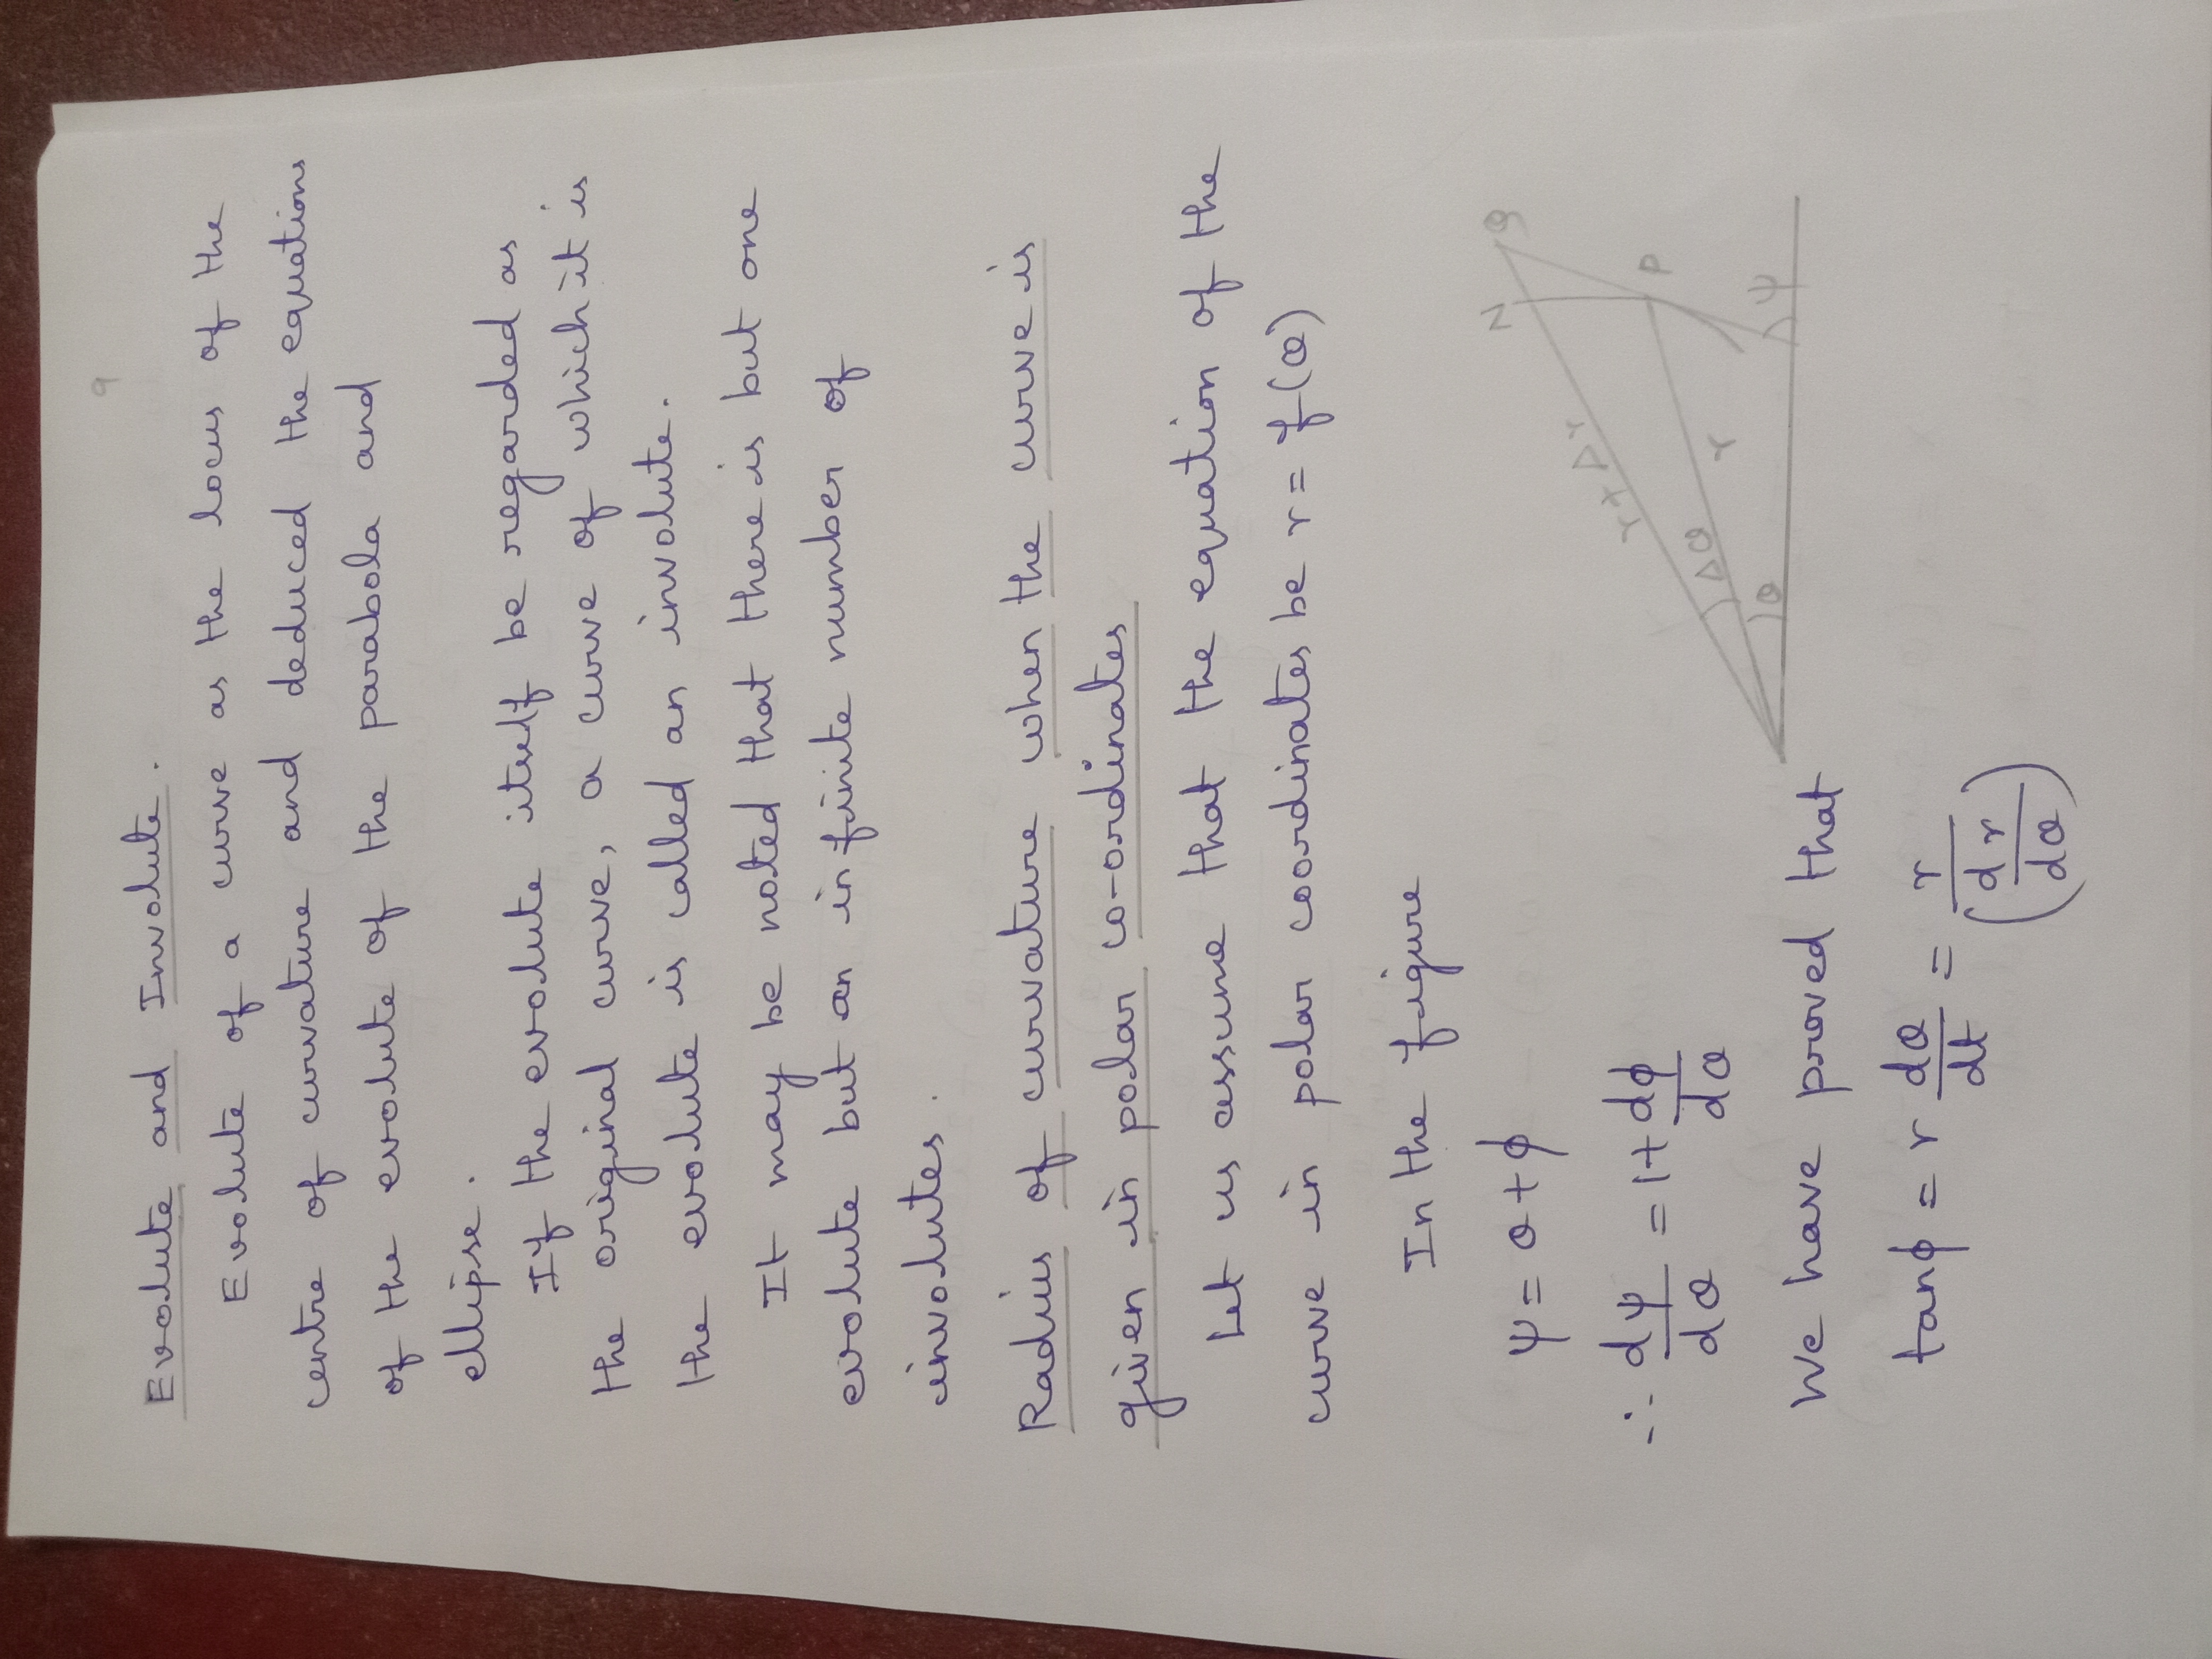 9
Evolute and Involute.
Evolute of a curve as the locus of the
centre of curvature and deduced the equations
of the evolute of the parabola and
ellipse.
If the evolute itself be regarded as
the original curve, a curve of which it is
the evolute is called an involute.
It may be noted that there is but one
evolute but an infinite number of
involutes.
Radius of curvature when the curve is
given in polar co-ordinates
Let us assume that the equation of the
curve in polar coordinates be r = f(θ)
In the figure
ψ = θ + ϕ
∴ dψ/dθ = 1 + dϕ/dθ
N
Q
r + Δr
P
Δθ
r
θ
ψ
We have proved that
tanϕ = r dθ/dt = r/(dr/dθ)